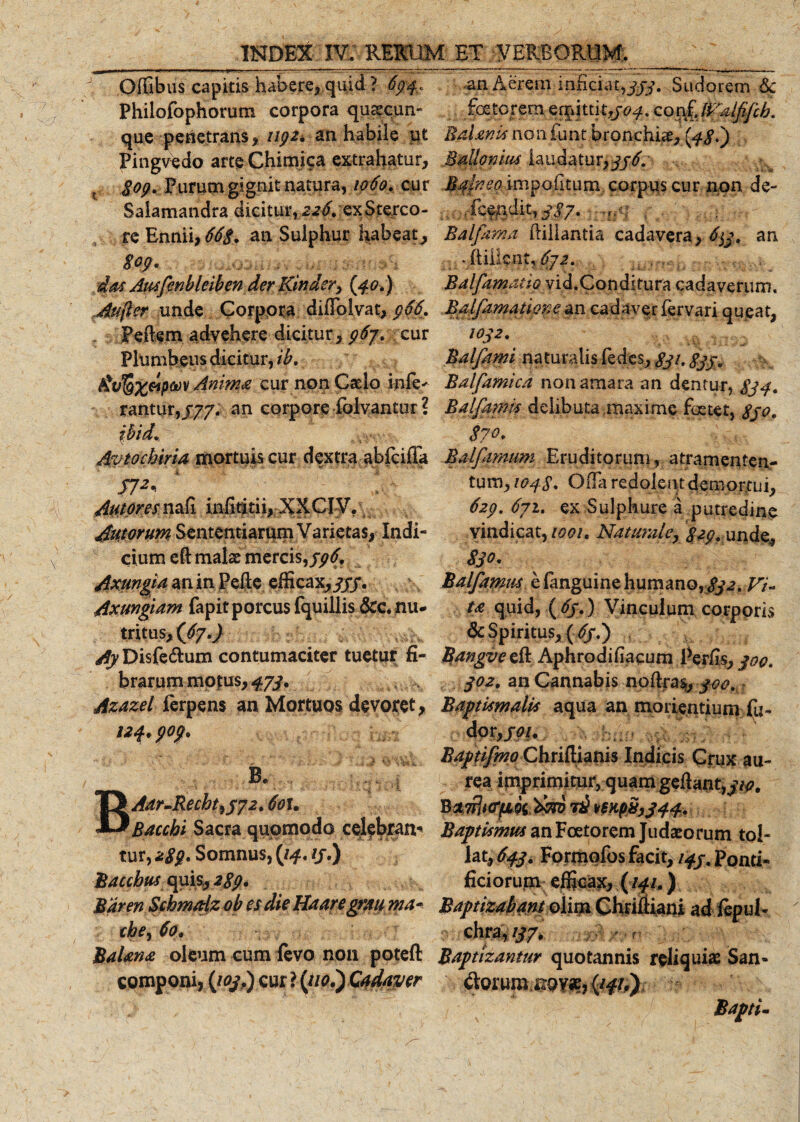 INDEX IV. RERUM ET VERBORUM.
Oſſibus capitis habere, quid? 694.
Philoſophorum corpora quæcun-
que penetrans, 1192. an habile ut
Pingvedo arte Chimica extrahatur,
809. Purum gignit natura, 1060. cur
Salamandra dicitur, 226. ex Sterco-
re Ennii, 668. an Sulphur habeat,
809.
das Ausſenbleiben der Kinder, (40.)
Auſter unde Corpora diſſolvat, 966.
Peſtem advehere dicitur, 967. cur
Plumbeus dicitur, ib.
Animæ cur non Cælo inſe-
rantur, 577. an corpore ſolvantur?
ibid.
Avtochiria mortuis cur dextra abſciſſa
572.
Autores naſi inſititii, XXCIV.
Autorum Sententiarum Varietas, Indi-
cium eſt malæ mercis, 596.
Axungia an in Peſte efficax, 355.
Axungiam ſapit porcus ſquillis &c. nu-
tritus, (67.)
Ay Disſectum contumaciter tuetur fi-
brarum motus, 473.
Azazel ſerpens an Mortuos devoret,
124. 909.
B.
BAar-Recht, 572. 601.
Bacchi Sacra quomodo celebran-
tur, 289. Somnus, (14. 15.)
Bacchus quis, 289.
Bären Schmalz ob es die Haare grau ma-
che, 60.
Balænæ oleum cum ſevo non poteſt
componi, (103.) cur? (110.) Cadaver
an Aërem inficiat, 353. Sudorem &
fœtorem emittit, 504. conf. Walfiſch.
Balænis non ſunt bronchiæ, (48.)
Ballonius laudatur, 356.
Balneo impoſitum corpus cur non de-
ſcendit, 387.
Balſama ſtillantia cadavera, 633. an
ſtillent, 672.
Balſamatio vid. Conditura cadaverum.
Balſamatione an cadaver ſervari queat,
1032.
Balſami naturalis ſedes, 831. 835.
Balſamica non amara an dentur, 834.
Balſamis delibuta maxime fœtet, 850.
870.
Balſamum Eruditorum, atramenten-
tum, 1048. Oſſa redolent demortui,
629. 671. ex Sulphure à putredine
vindicat, 1001. Naturale, 829. unde,
830.
Balſamus è ſanguine humano, 832. Vi-
tæ quid, (65.) Vinculum corporis
& Spiritus, (65.)
Bangve eſt Aphrodiſiacum Perſis, 300.
302. an Cannabis noſtras, 300.
Baptismalis aqua an morientium ſu-
dor, 591.
Baptiſmo Chriſtianis Indicis Crux au-
rea imprimitur, quam geſtant, 319.
Βαπτισμὸς ἀπὸ τοῦ νεκροῦ, 344.
Baptismus an Fœtorem Judæorum tol-
lat, 643. Formoſos facit, 145. Ponti-
ficiorum efficax, (141.)
Baptizabant olim Chriſtiani ad ſepul-
chra, 137.
Baptizantur quotannis reliquiæ San-
ctorum novæ, (141.)
Bapti-